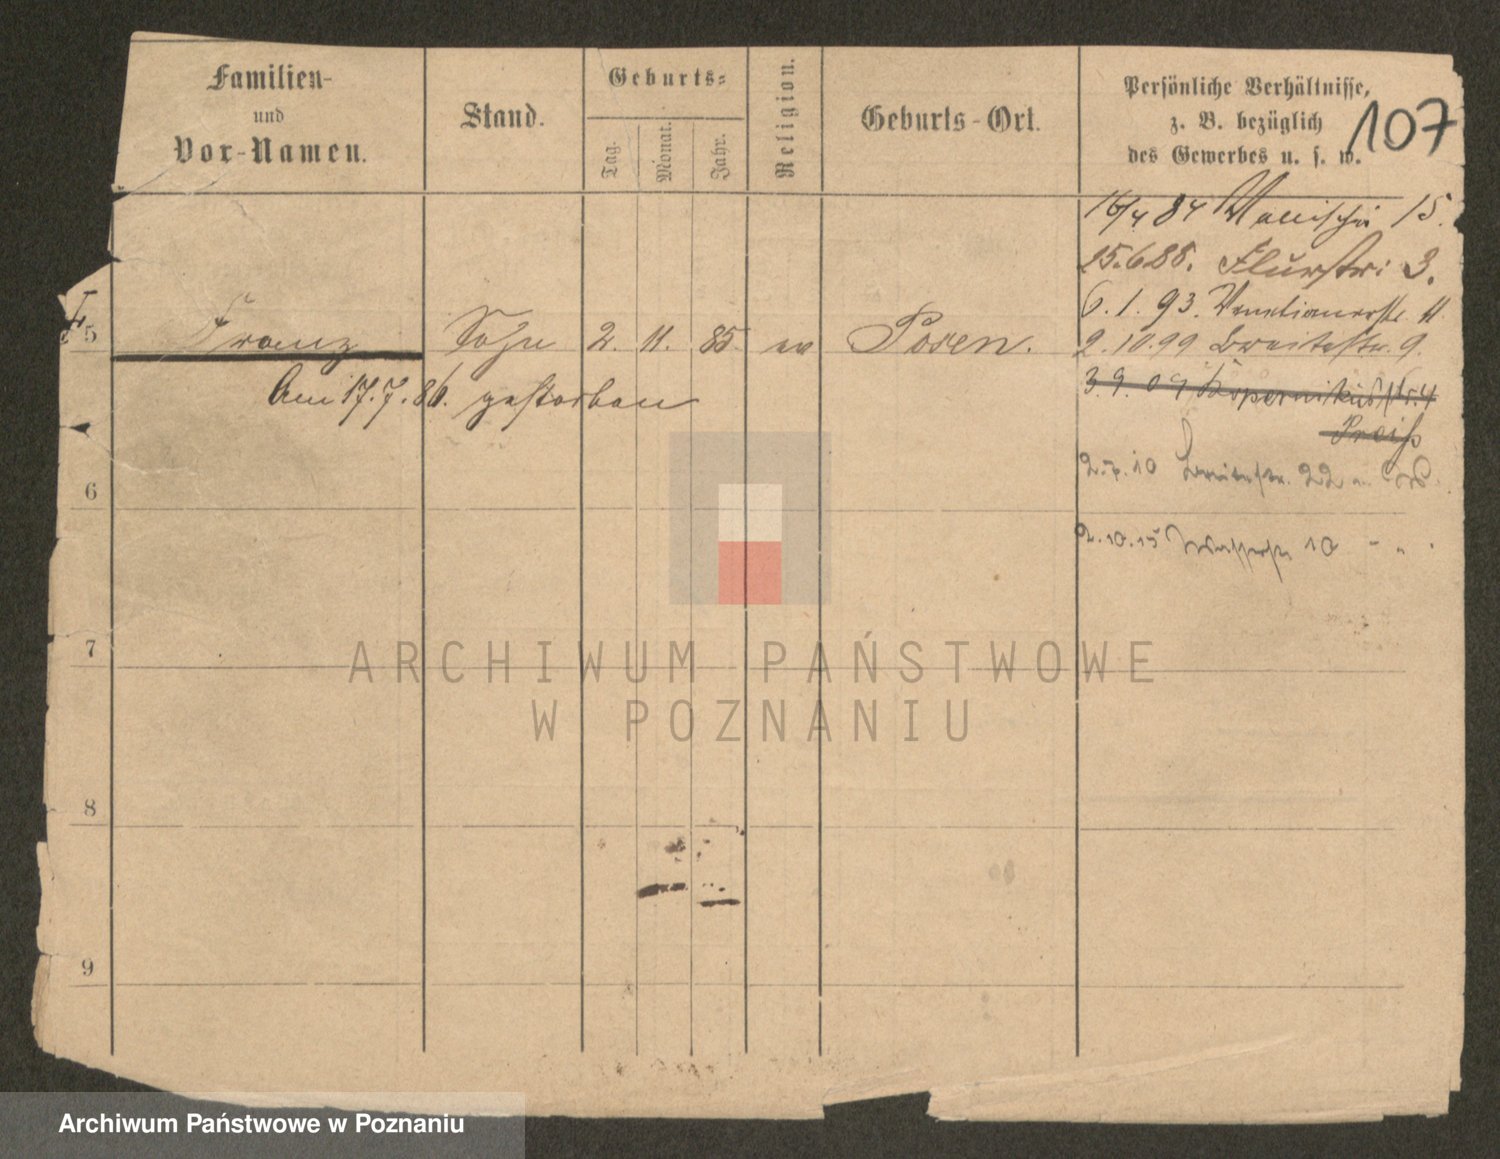 Familien-
und
Vor-Namen.
Stand.
Geburts-
Tag.
Monat.
Jahr.
Religion.
Geburts-Ort.
Persönliche Verhältnisse,
z. B. bezüglich
des Gewerbes u. s. w.
107
16/4 84 Wallischei 15.
25.6.88. Flurstr. 3.
6.1.93. Venetianerstr. 11.
5 Franz Sohn 2. 11. 85. ev Posen.
2.10.99 Breitestr. 9.
Am 17.7.86. gestorben
3.9.09 Kopernikusstr. 4
Preiß
6
2.5.10 Breitestr. 22
2.10.15 Wasserstr. 10 - " .
7
8
9
ARCHIWUM PAŃSTWOWE
W POZNANIU
Archiwum Państwowe w Poznaniu